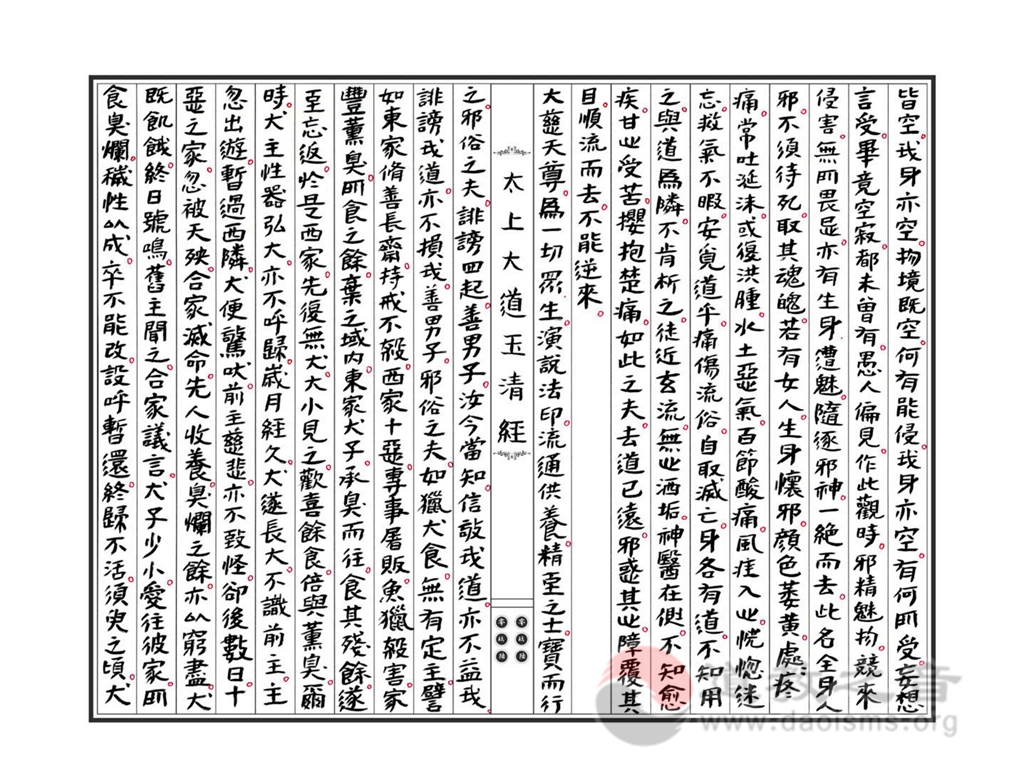 皆空。我身亦空。物境既空。何有能侵。我身亦空。有何所受。妄想
言受。畢竟空寂。都未曾有。愚人偏見。作此觀時。邪精魅物。競來
侵害。無所畏忌。亦有生身遭魅。隨逐邪神。一絕而去。此名全身人
邪。不須待死。取其魂魄。若有女人。生身懷邪。顏色萎黃。處處疼
痛。常吐涎沫。或復洪腫。水土惡氣。百節酸痛。風疰入心。恍惚迷
忘。救氣不暇。安覓道乎。痛傷流俗。自取滅亡。身各有道。不知用
之。與道為隣。不肯析之。徒近玄流。無心洒垢。神醫在側。不知愈
疾。甘心受苦。攖抱楚痛。如此之夫。去道已遠。邪惑其心。障覆其
目。順流而去。不能逆來。
大慈天尊。為一切眾生。演說法印。流通供養。精至之士。寶而行
太上大道玉清經
之。邪俗之夫。誹謗四起。善男子。汝今當知。信敬我道。亦不益我。
誹謗我道。亦不損我。善男子。邪俗之夫。如獵犬食。無有定主。譬
如東家脩善。長齋持戒不殺。西家十惡。專事屠販。魚獵殺害。家
豐薰臭。所食之餘。棄之域內。東家犬子。承臭而往。食其殘餘。遂
至忘返。於是西家。先復無犬。大小見之。歡喜餘食。倍與薰臭。爾
時。犬主性器弘大。亦不呼歸。歲月經久。犬遂長大。不識前主。主
忽出遊。暫過西隣。犬便驚吠。前主慈悲。亦不致怪。卻後數日。十
惡之家。忽被天殃。合家滅命。先人收養。臭爛之餘。亦以窮盡。犬
既飢餓。終日號鳴。舊主聞之。合家議言。犬子少小。愛往彼家。所
食臭爛。穢性以成。卒不能改。設呼暫還。終歸不活。須臾之頃。犬
道教之音
www.daoisms.org